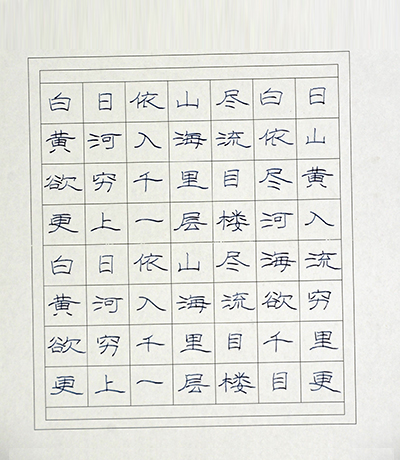 白日依山尽白日
黄河入海流依山
欲穷千里目尽黄
更上一层楼河入
白日依山尽海流
黄河入海流欲穷
欲穷千里目千里
更上一层楼目更